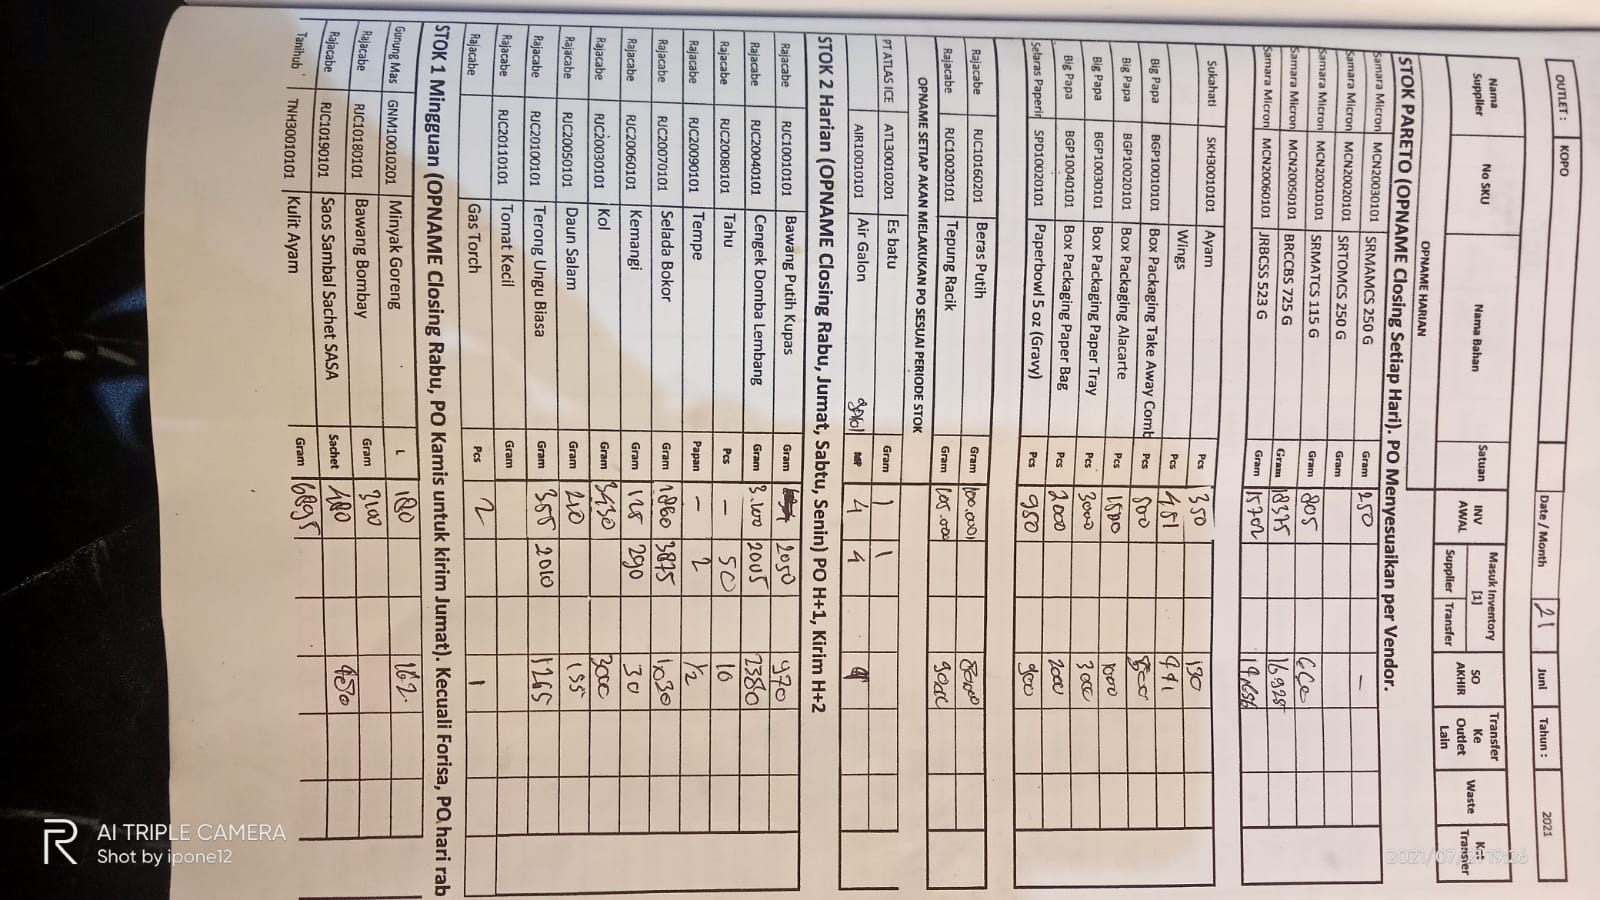 OUTLET : KOPO Date / Month 21 Juni Tahun : 2021
OPNAME HARIAN
Nama Supplier No SKU Nama Bahan Satuan INV AWAL Masuk Inventory [1] Supplier Transfer SO AKHIR Transfer Ke Outlet Lain Waste Ket Transfer
STOK PARETO (OPNAME Closing Setiap Hari). PO Menyesuaikan per Vendor.
Samara Micron MCN20030101 SRMAMCS 250 G Gram 250 –
Samara Micron MCN20020101 SRTOMCS 250 G Gram
Samara Micron MCN20010101 SRMATCS 115 G Gram 805
Samara Micron MCN20050101 BRCCBS 725 G Gram 18375 16.925
Samara Micron MCN20060101 JRBCSS 523 G Gram 15702
Sukahati SKH30010101 Ayam Pcs 350 190
Wings Pcs 451 441
Big Papa BGP10010101 Box Packaging Take Away Comb Pcs 800
Big Papa BGP10020101 Box Packaging Alacarte Pcs 1500 1000
Big Papa BGP10030101 Box Packaging Paper Tray Pcs 3000 3000
Big Papa BGP10040101 Box Packaging Paper Bag Pcs 2000 2000
Selaras Paperin SPD10020101 Paperbowl 5 oz (Gravy) Pcs 950 900
Rajacabe RJC10160201 Beras Putih Gram 100.000
Rajacabe RJC10020101 Tepung Racik Gram 105.000
OPNAME SETIAP AKAN MELAKUKAN PO SESUAI PERIODE STOK
PT ATLAS ICE ATL30010201 Es batu Gram 1 1
AIR10010101 Air Galon 4 4
STOK 2 Harian (OPNAME Closing Rabu, Jumat, Sabtu, Senin) PO H+1, Kirim H+2
Rajacabe RJC10010101 Bawang Putih Kupas Gram 2050 970
Rajacabe RJC20040101 Cengek Domba Lembang Gram 3.100 2005 2380
Rajacabe RJC20080101 Tahu Pcs – 50 10
Rajacabe RJC20090101 Tempe Papan – 2 1/2
Rajacabe RJC20070101 Selada Bokor Gram 1860 3875 1030
Rajacabe RJC20060101 Kemangi Gram 125 290 30
Rajacabe RJC20030101 Kol Gram 3430 3000
Rajacabe RJC20050101 Daun Salam Gram 210 155
Rajacabe RJC20100101 Terong Ungu Biasa Gram 355 2010 1265
Rajacabe RJC20110101 Tomat Kecil Gram
Rajacabe Gas Torch Pcs 2 1
STOK 1 Mingguan (OPNAME Closing Rabu, PO Kamis untuk kirim Jumat). Kecuali Forisa, PO hari rab
Gunung Mas GNM10010201 Minyak Goreng L 180 162
Rajacabe RJC10180101 Bawang Bombay Gram 3100
Rajacabe RJC10190101 Saos Sambal Sachet SASA Sachet 480 480
Tanihub TNH30010101 Kulit Ayam Gram 6895
AI TRIPLE CAMERA
Shot by ipone12